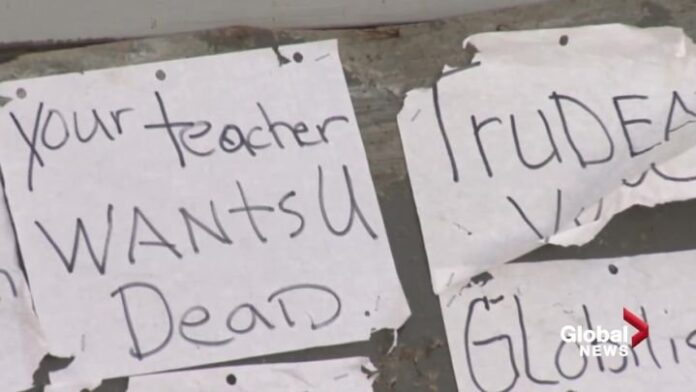 Your teacher
WANtS U
DeaD.
TruDEA
GLObilis
Global
NEWS